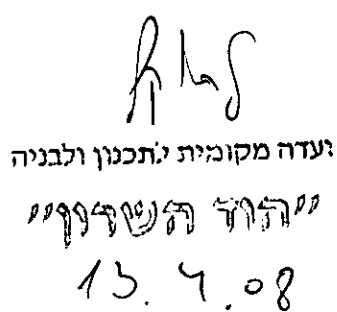 ועדה מקומית לתכנון ולבניה
"הוד השרון"
13.4.08